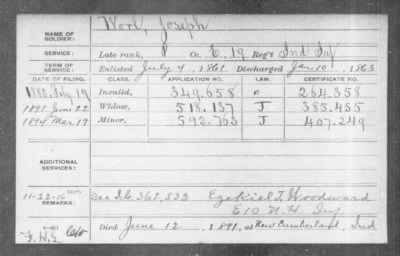 NAME OF SOLDIER: Worl, Joseph
SERVICE: Late rank, P Co. E, 19 Reg't Ind Inf
TERM OF SERVICE: Enlisted July 4, 1861. Discharged Jan 10, 1863
DATE OF FILING. CLASS. APPLICATION NO. LAW. CERTIFICATE NO.
1880. July 19 Invalid, 349.658 o 264.358
1891 June 22 Widow, 518.137 J 385.455
1894 Mar 19 Minor, 592.763 J 407.249
ADDITIONAL SERVICES:
11-22-16 REMARKS: See 362,533 Ezekiel T. Woodward
E 10 N.H. Inf
Died June 12, 1891, at New Cumberland, Ind